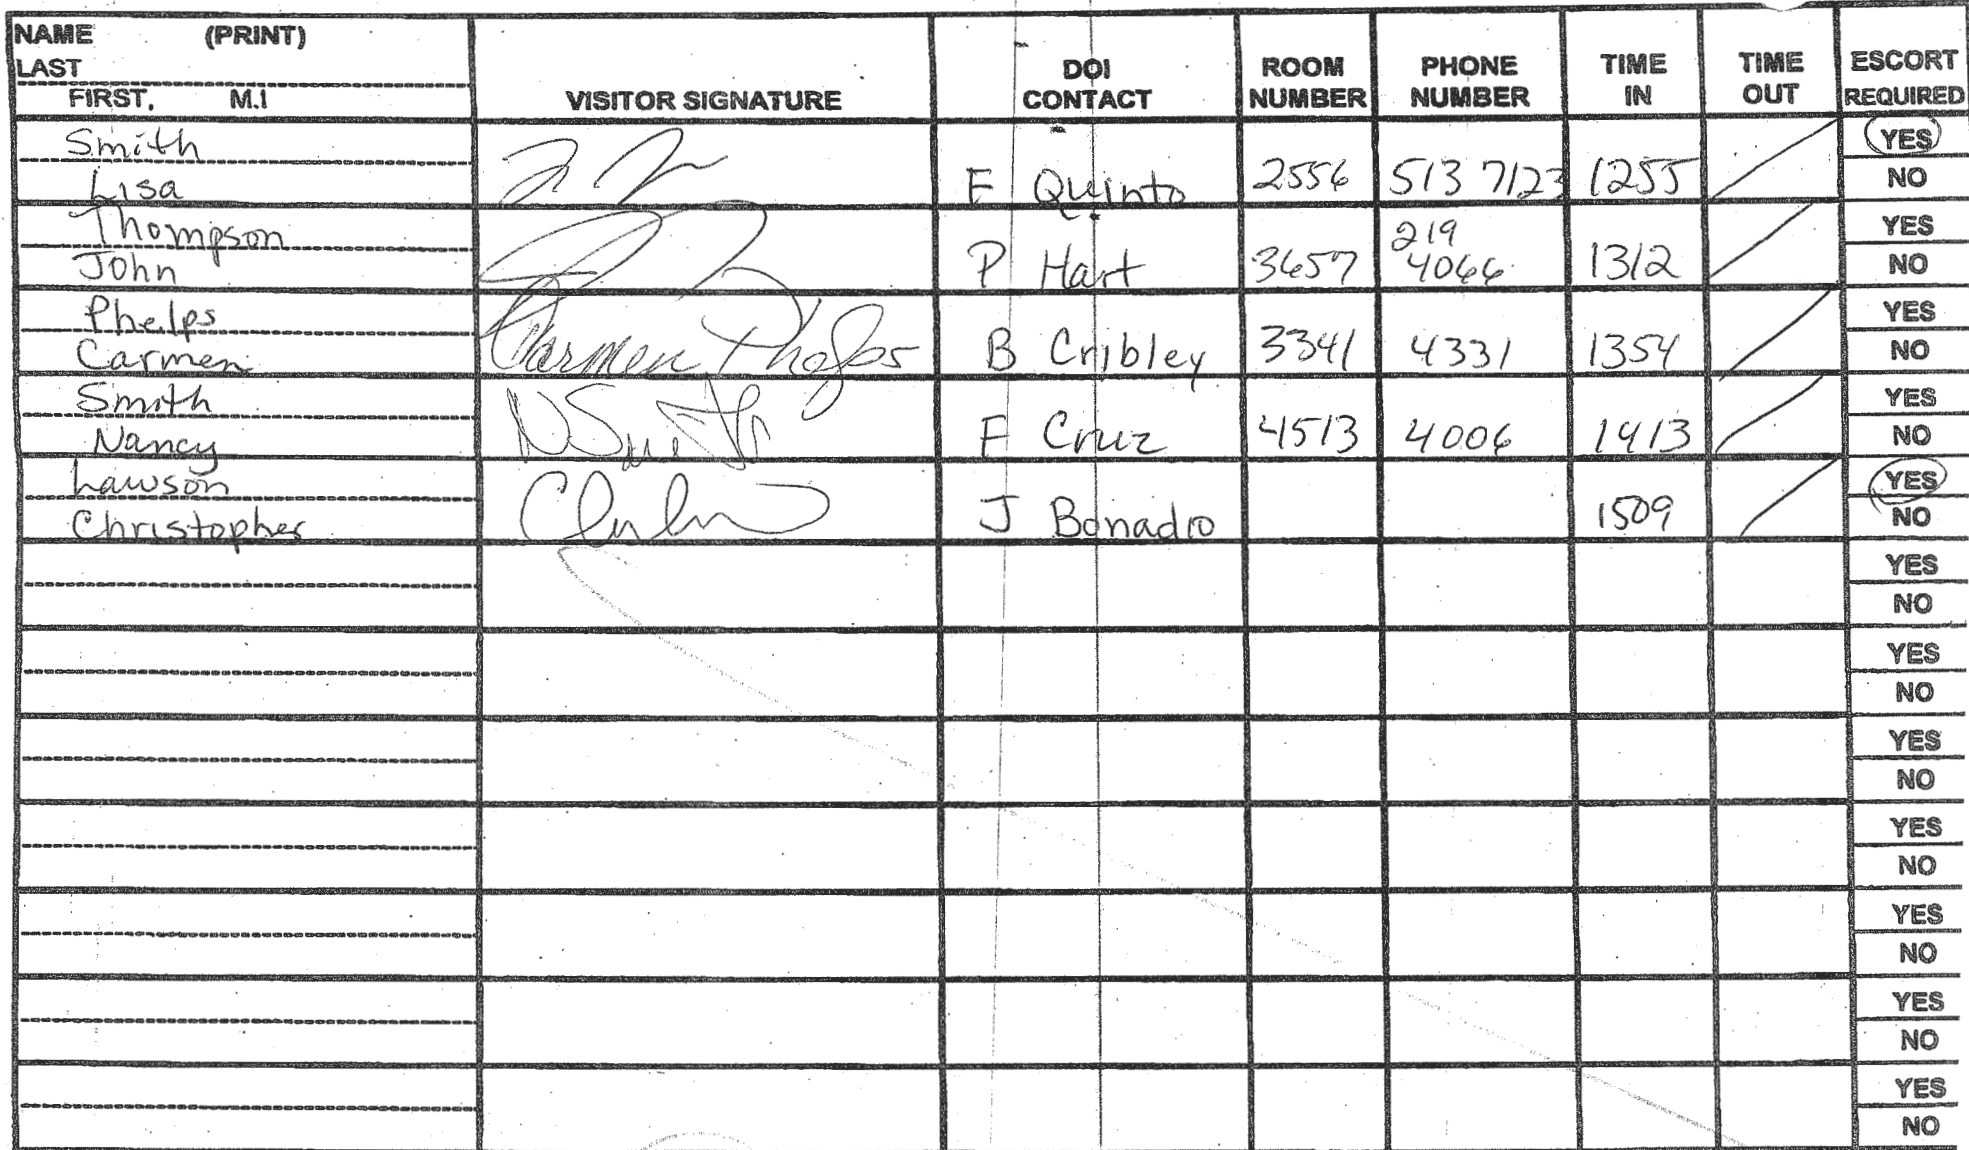 NAME (PRINT)
LAST
FIRST, M.I
VISITOR SIGNATURE
DOI
CONTACT
ROOM
NUMBER
PHONE
NUMBER
TIME
IN
TIME
OUT
ESCORT
REQUIRED
Smith
Lisa
F Quinto
2556
513 7123
1255
YES
NO
Thompson
John
P Hart
3657
219
4066
1312
YES
NO
Phelps
Carmen
Carmen Phelps
B Cribley
3341
4331
1354
YES
NO
Smith
Nancy
N Smith
F Cruz
4513
4006
1413
YES
NO
Lawson
Christopher
J Bonadio
1509
YES
NO
YES
NO
YES
NO
YES
NO
YES
NO
YES
NO
YES
NO
YES
NO